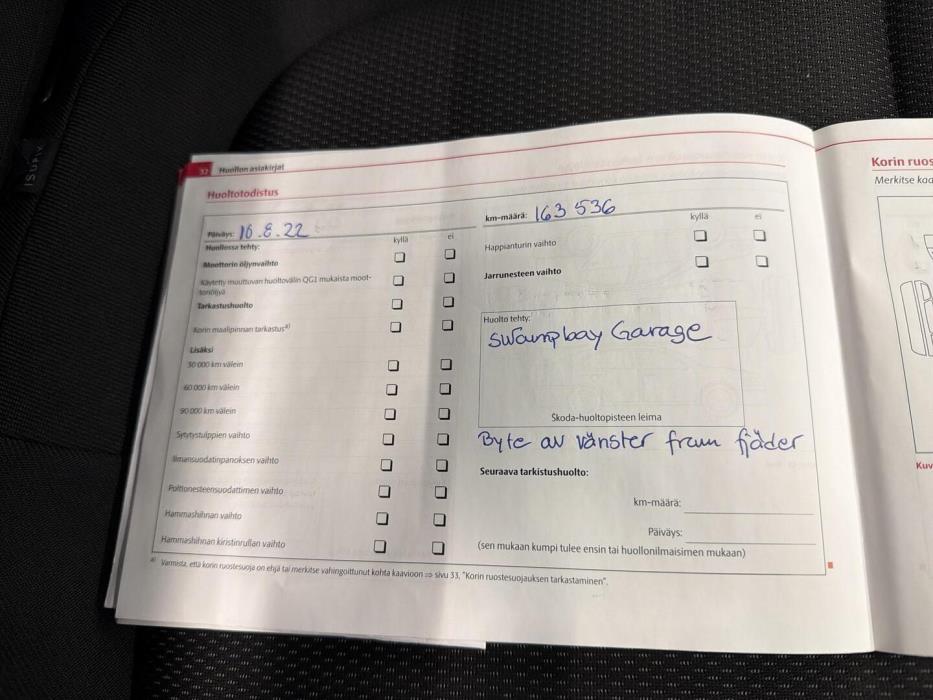 32 Huollon asiakirjat
Huoltotodistus
Päiväys: 16.8.22
km-määrä: 163 536
Huollossa tehty:
kyllä ei
Moottorin öljynvaihto
Käytetty muuttuvan huoltovälin QG1 mukaista moot-
toriöljyä
Tarkastushuolto
Korin maalipinnan tarkastus a)
Lisäksi
30 000 km välein
60 000 km välein
90 000 km välein
Sytytystulppien vaihto
Ilmansuodatinpanoksen vaihto
Polttonesteensuodattimen vaihto
Hammashihnan vaihto
Hammashihnan kiristinrullan vaihto
kyllä ei
Happianturin vaihto
Jarrunesteen vaihto
Huolto tehty:
Swampbay Garage
Skoda-huoltopisteen leima
Byte av vänster fram fjäder
Seuraava tarkistushuolto:
km-määrä:
Päiväys:
(sen mukaan kumpi tulee ensin tai huollonilmaisimen mukaan)
a) Varmista, että korin ruostesuoja on ehjä tai merkitse vahingoittunut kohta kaavioon ⇒ sivu 33, "Korin ruostesuojauksen tarkastaminen".
Korin ruos
Merkitse kaa
Kuv
ISOFIX